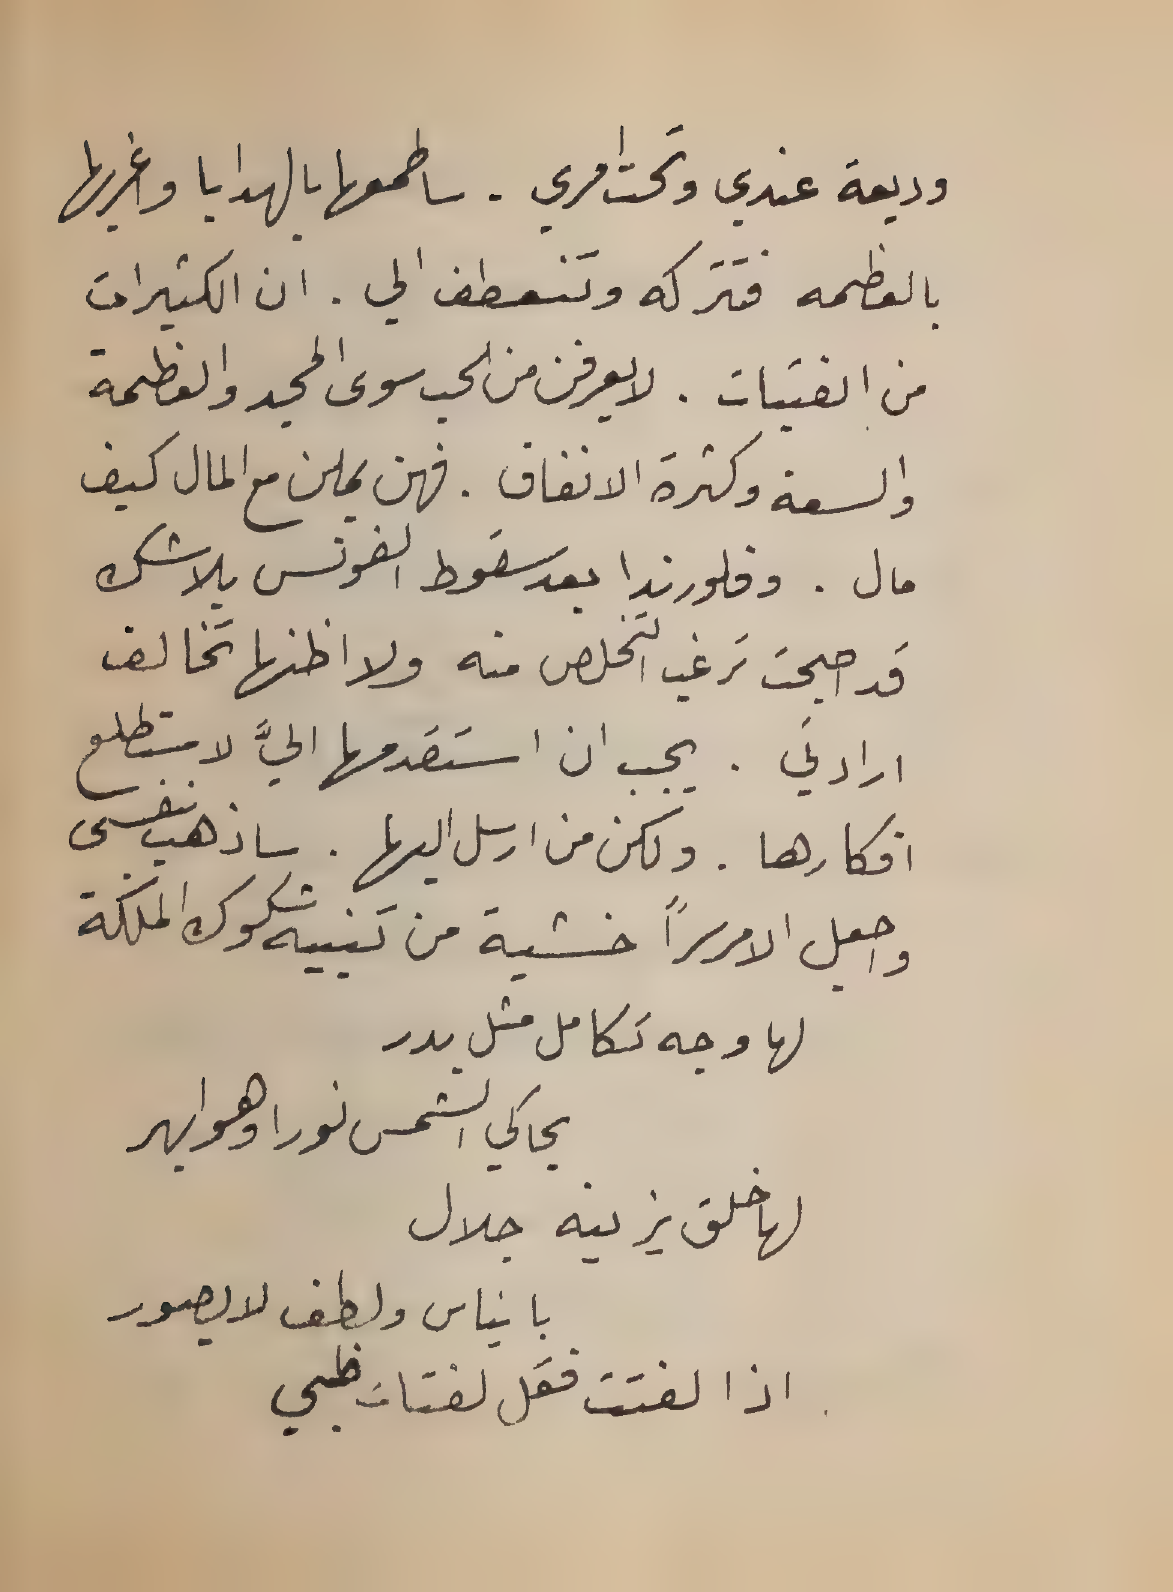 وديعة عندي وتحت امري . ساطمعها بالهدايا واغريها
بالعظمه فتتركه وتنعطف الي . ان الكثيرات
من الفتيات . لا يعرفن من الحب سوى المجد والعظمة
والسعة وكثرة الانفاق . فهن يملن مع المال كيف
مال . وفلورندا بعد سقوط الفونس بلا شك
قد اصبحت ترغب التخلص منه ولا اظنها تخالف
ارادتي . يجب ان استقدمها اليَّ لاستطلع
افكارها . ولكن من ارسل اليها . ساذهب بنفسى
واجعل الامر سراً خشية من تنبيه شكوك الملكة
لها وجه تكامل مثل بدر
يحاكي الشمس نورا وهو ابهر
لها خلق يزينه جلال
بايناس ولطف لا يصور
اذا لفتت فقل لفتات ظبي